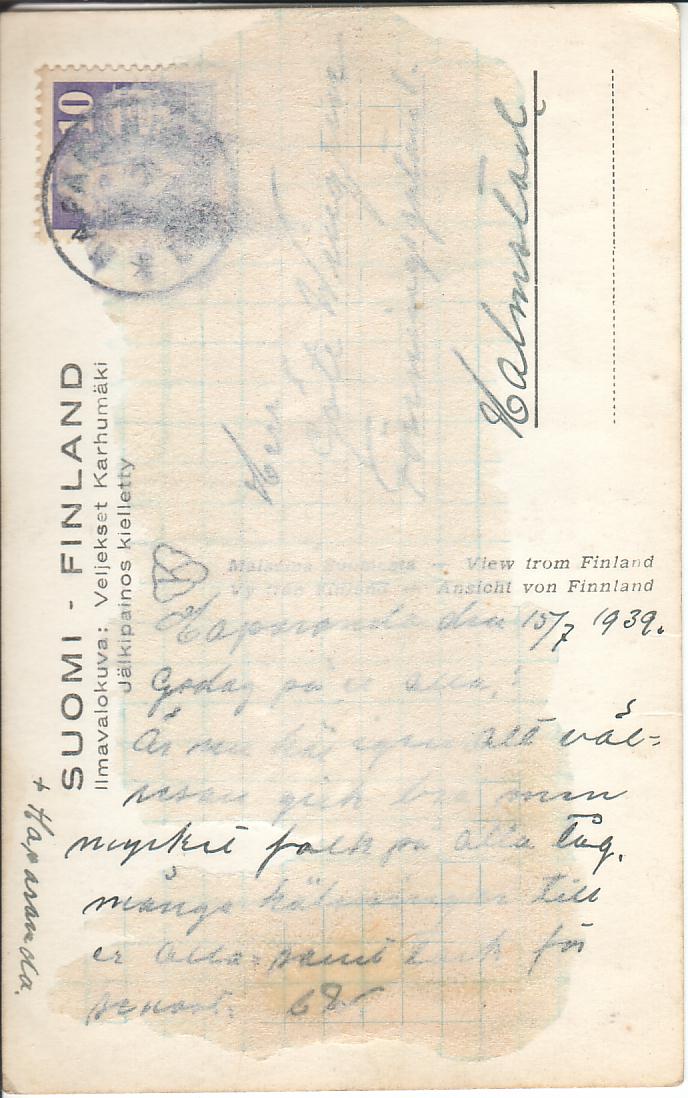 10
HAPARANDA
SUOMI - FINLAND
Ilmavalokuva: Veljekset Karhumäki
Jälkipainos kielletty
Herr
Göte
Föreningsgatan 1.
Halmstad
Maisema Suomesta — View trom Finland
Vy från Finland — Ansicht von Finnland
Haparanda den 15/7 1939.
Godag på er alla!
Är nu här igen allt väl=
resan gick bra men
mycket folk på alla tåg.
många hälsningar till
er alla samt tack för
senast.
+ Haparanda.